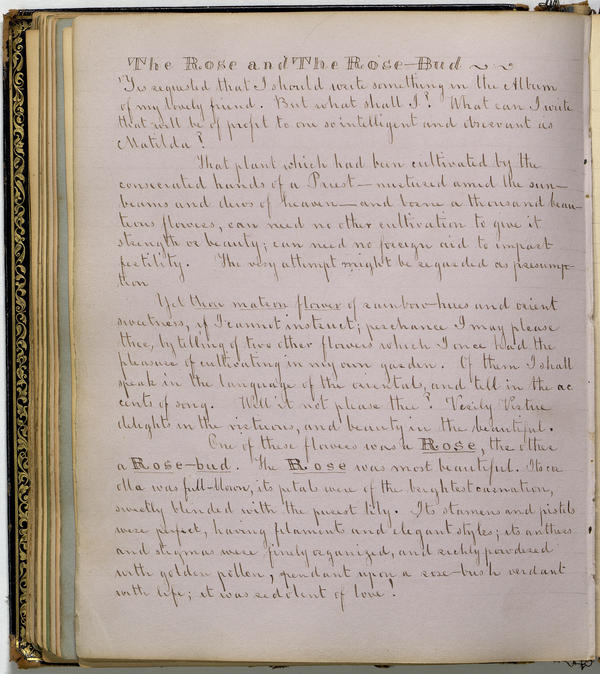 The Rose and The Rose-Bud
'Tis requested that I should write something in the Album
of my lovely friend. But what shall I? What can I write
that will be of profit to one so intelligent and observant as
Matilda?
That plant which had been cultivated by the
consecrated hands of a Priest—nurtured amid the sun-
beams and dews of heaven—and borne a thousand beau-
teous flowers, can need no other cultivation to give it
strength or beauty; can need no foreign aid to impart
fertility. The very attempt might be regarded as presump-
tion
Yet thou matron flower of rainbow-hues and orient
sweetness, if I cannot instruct; perchance I may please
thee, by telling of two other flowers which I once had the
pleasure of cultivating in my own garden. Of them I shall
speak in the language of the orientals, and tell in the ac
cents of song. Will it not please thee? Verily Virtue
delights in the virtuous, and beauty in the beautiful.
One of these flowers was a Rose, the other
a Rose-bud. The Rose was most beautiful. Its co
olla was full-blown, its petals were of the brightest carnation,
sweetly blended with the purest lily. Its stamens and pistols
were perfect, having filaments and elegant styles; its anthers
and stigmas were finely organized, and richly powdered
with golden pollen, pendant upon a rose-bush verdant
with life; it was redolent of love!